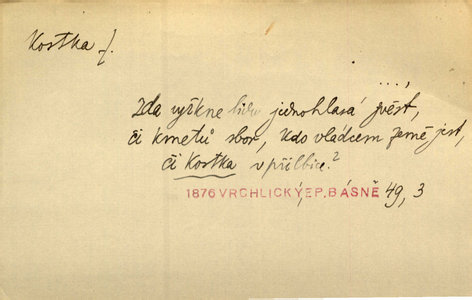 Kostka f.
...,
Zda vyřkne lidu jednohlasá zvěst,
či kmetů sbor, kdo vládcem země jest,
či Kostka v přílbice?
1876 VRCHLICKÝ, EP. BÁSNĚ 49, 3